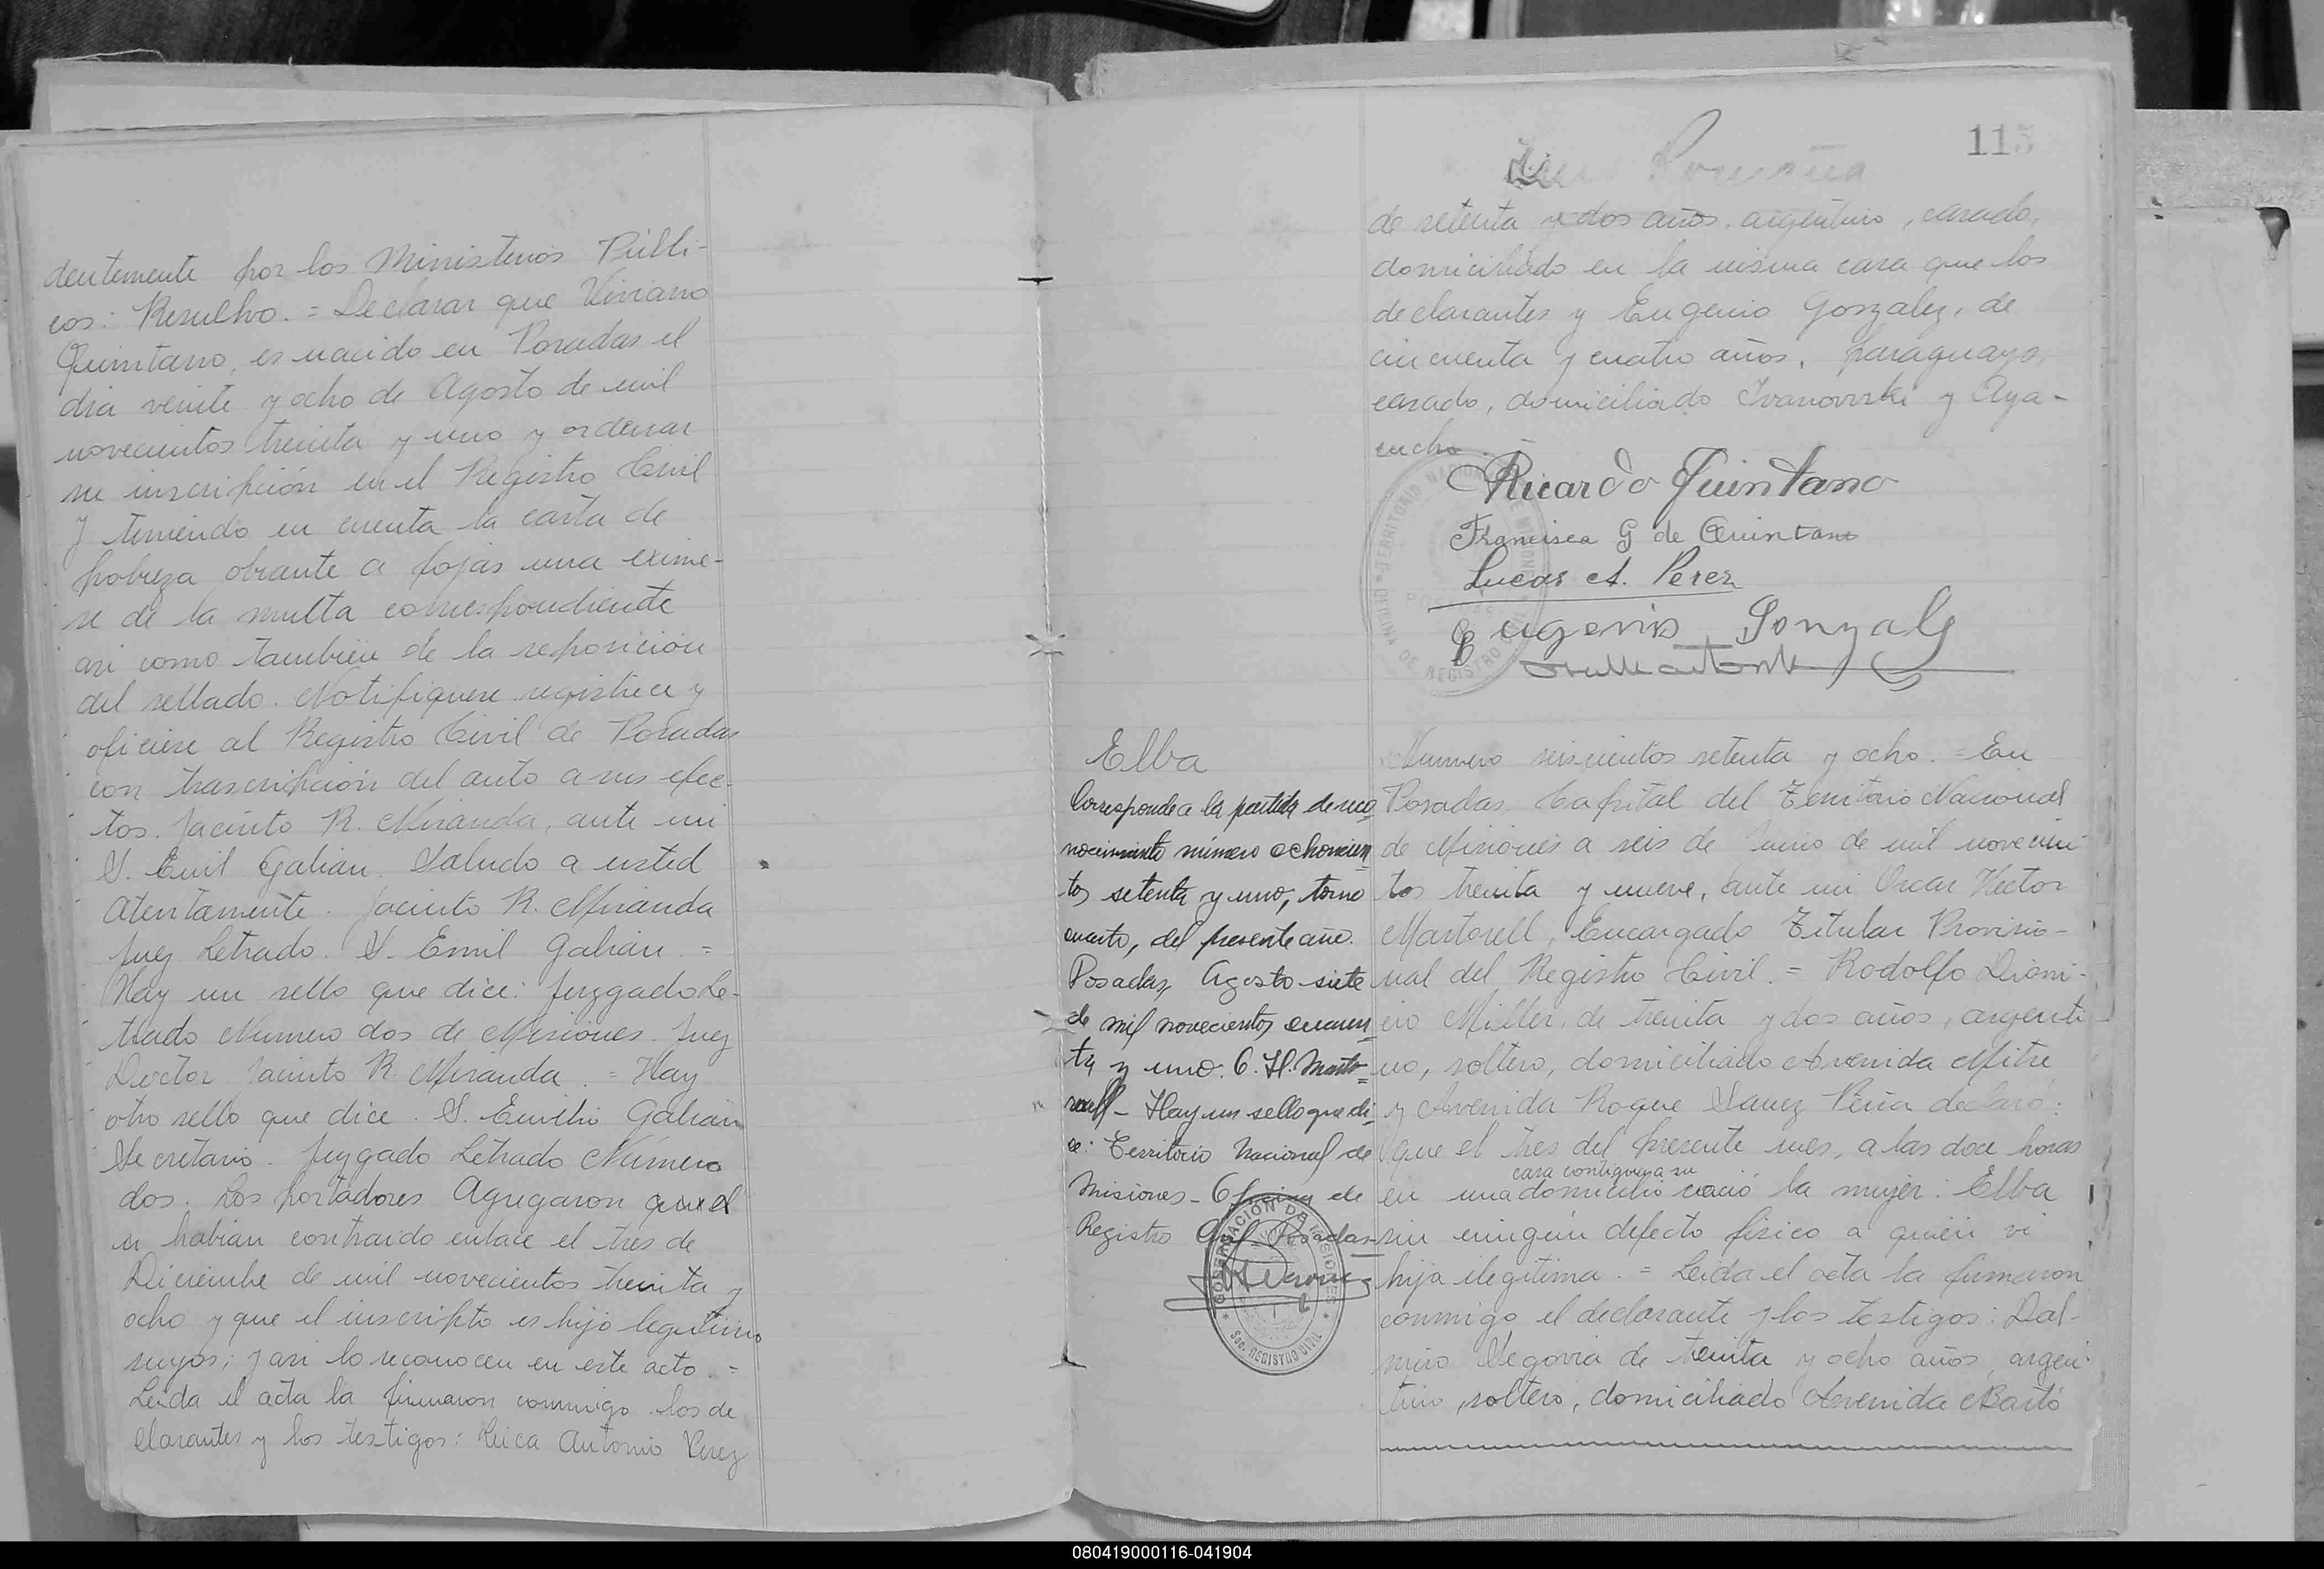 dentemente por los Ministerios Públi-
cos: Resuelvo. = Declarar que Viviano
Quintano, es nacido en Posadas el
dia veinte y ocho de Agosto de mil
novecientos treinta y uno y ordenar
su inscripción en el Registro Civil
y teniendo en cuenta la carta de
pobreza obrante a fojas una exime-
se de la multa correspondiente
asi como tambien de la reposición
del sellado. Notifiquese registrece y
oficiese al Registro Civil de Posadas
con trascripción del auto a sus efec-
tos. Jacinto R. Miranda, ante mi
S. Emil Galian. Saludo a usted
Atentamente. Jacinto R. Miranda
Juez Letrado. S. Emil Galian. =
Hay un sello que dice: Juzgado Le-
trado Numero dos de Misiones. Juez
Doctor Jacinto R. Miranda. = Hay
otro sello que dice. S. Emilio Galian
Secretario. Juzgado Letrado Número
dos. Los portadores Agregaron que el
habian contraido enlace el tres de
Diciembre de mil novecientos treinta y
ocho y que el inscripto es hijo legitimo
suyos; y asi lo reconocen en este acto. =
Leida el acta la firmaron conmigo los de
clarantes y los testigos: Antonio Perez
115
de setenta y dos años, argentino, casado,
domiciliado en la misma casa que los
declarantes y Eugenio Gonzalez, de
cincuenta y cuatro años, paraguayo,
casado, domiciliado Ivanovski y Aya-
cucho.
Ricardo Quintano
Francisca G de Quintano
Lucas A. Perez
Eugenio Gonzalez
Elba
Corresponde a la partida de reco
nocimiento número ochocien
tos setenta y uno, tomo
cuarto, del presente año.
Posadas, Agosto siete
de mil novecientos cuaren
ta y uno. O. H. Marto
rell - Hay un sello que di
ce: Territorio Nacional de
Misiones - Oficina de
Registro Civil Posadas
GOBERNACIÓN DE MISIONES
Sec. REGISTRO CIVIL
Numero seiscientos setenta y ocho. = En
Posadas Capital del Territorio Nacional
de Misiones a seis de Junio de mil novecien
tos treinta y nueve, ante mi Oscar Hector
Martorell, Encargado Titular Provisio-
nal del Registro Civil. = Rodolfo Dioni-
cio Miller, de treinta y dos años, argenti
no, soltero, domiciliado Avenida Mitre
y Avenida Roque Saenz Peña declaró:
que el tres del presente mes, a las doce horas
casa contigua a su
en una domicilio nació la mujer: Elba
sin ningún defecto fisico a quién vi
hija ilegitima. = Leida el acta la firmaron
conmigo el declarante y los testigos: Dal-
miro Segovia de treinta y ocho años, argen
tino, soltero, domiciliado Avenida Barto
080419000116-041904